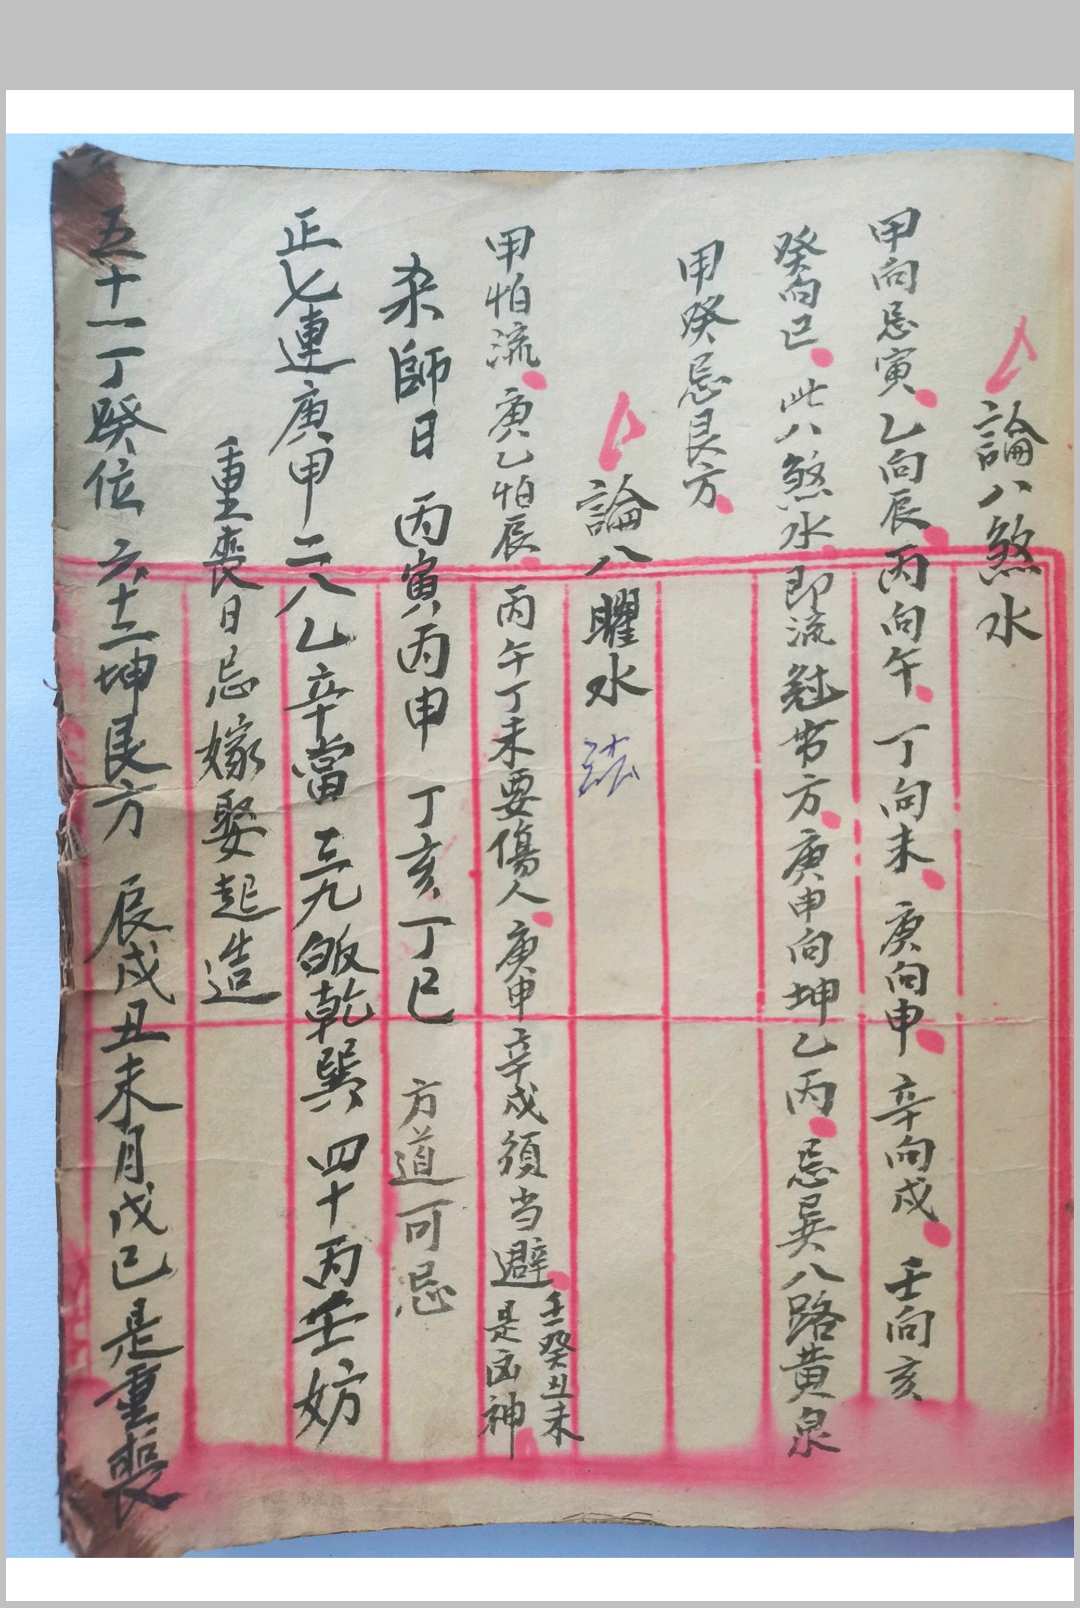 論八煞水
甲向忌寅乙向辰丙向午丁向未庚向申辛向戌壬向亥
癸向巳此八煞水即流冠帯方庚申向坤乙丙忌巽八路黄泉
甲癸忌艮方
論八曜水
甲怕流庚乙怕辰丙午丁未要傷人庚申辛戌須当避壬癸丑未是凶神
杀師日丙寅丙申丁亥丁巳方道可忌
正七連庚甲二八乙辛當三九皈乾巽四十丙壬妨
重喪日忌嫁娶起造
五十一丁癸位六十二坤艮方辰戌丑未月戊己是重喪